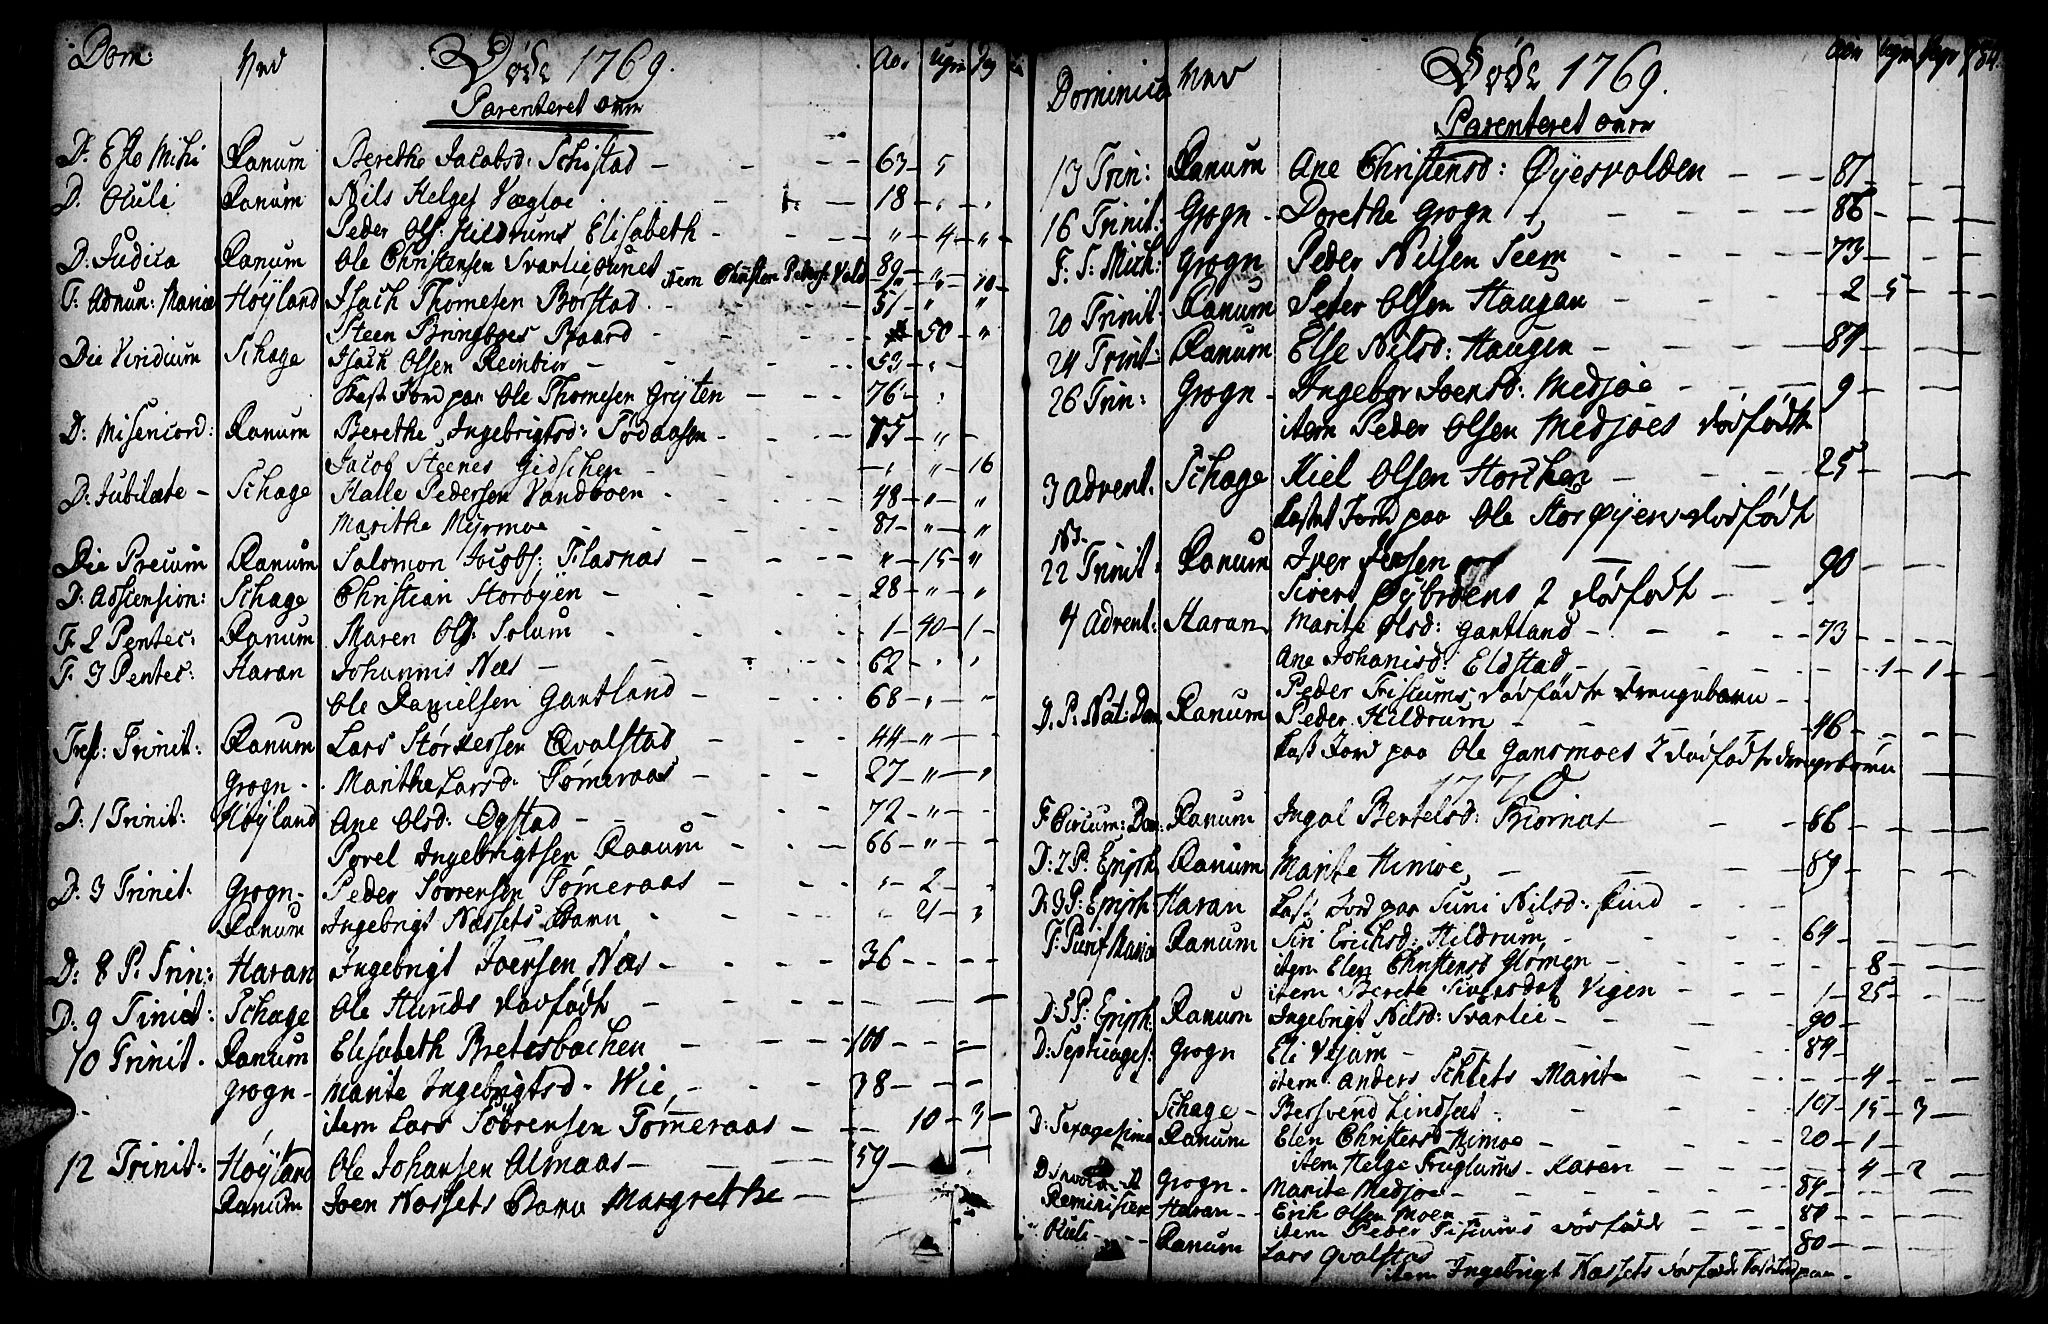 Dom: Ved Døde 1769. Aar Ugr Dag
Parenteret over
D. Esto Mihi Ranum Berethe Jacobsd: Schistad 63 - 5
D. Oculi Ranum Nils Helges Vægloe 18
Peder Ols: Hildrums Elisabeth " 4 "
D: Judica Ranum Ole Christensen Svarliaunet 89
item Christen Peders: Vold " 10
F. Adnun: Mariæ Høyland Isach Thomesen Børstad 51 " "
Steen Bringboes 50 "
Die Viridium Schage Isach Olsen Reinbior 53
Kast Jord paa Ole Thomesen Grÿten 76
D: Misericord: Ranum Berethe Ingebrigtsd: 75 "
Jacob Steenes Gidschen " 16
D: Jubilate - Schage Halle Pedersen Vandboen 48 " "
Marithe Myrmoe 81 " "
Die Precum Ranum Salomon Jacobs: Flasnas " 15 "
D: Adscension: Schage Christian Storøÿen 28 " "
F. 2 Pentec: Ranum Maren Ols: Solum 1 - 40 - 1
F. 3 Pentec: Haran Johannis Næs 62
Ole Danielsen Gantland 68
Fest: Trinit: Ranum Lars Størkersen Qvalstad 44 "
Grogn - Marithe Larsd: Tømeraas 27 " "
D: 1 Trinit: Høÿland Ane Olsd: Ogstad 72 "
Povel Ingebrigtsen Ranum 66 "
D. 3 Trinit. Grogn - Peder Sørensen Tømeraas 2
Ranum Ingebrigt Næssets Barn 21
D: 8 P. Trin: Haran Ingebrigt Joensen Næs 36
D: 9 Trinit: Schage Ole Hunds dødfødt
10 Trinit. Ranum Elisabeth Bretesbachen 100
Grogn - Marite Ingebrigtsd - Wie 38
item Lars Sörensen Tømeraas 10 - 3
12 Trinit: Høÿland Ole Johansen Almaas 59
Ranum Joen Næssets Barn Margrethe
Dominica Ved Døde 1769. Aar Ugr Dage 84.
Parenteret over
13 Trin: Ranum Ane Christensd: Øÿesvolden 81
16 Trinit: Grogn - Dorethe Grogn 86
F: S: Mich: Grogn Peder Nilsen Seem 73
20 Trinit. Ranum Peder Olsen Haugan 2 5
24 Trinit - Ranum Else Nilsd: Haugen 89
26 Trin: Grogn - Ingebor Joensd: Medjøe 9
item Peder Olsen Medjøes dødfødt
3 Advent. Schage Kiel Olsen 25
Kastet Jord paa Ole Storøÿens dødfødt
22 Trinit. Ranum Iver Jensen 90
Sivert 2 dødfødt
4 Advent: Haran Marite Olsd: Gantland 73
Ane Johanisd: Eldstad 1 - 1
Peder dødfødte Drengebarn
D. P. Nat: Dom Ranum Peder Hildrum 46
Kast Jord paa Ole Gansmoes 2 dødfødte drengebørn
1770
F. Circum: Dom: Ranum Ingal Bertelsd: 86
D: 2 P. Epiph Ranum Marite Himoe 89
D: 3 P: Epiph Haran Kast Jord paa Suni Nilsd:
F: Purif Mariæ Ranum Siri Erichsd: Hildrum 64
item Elen Christensd Glömen 8
item Berete Sivers dat Vigen 1 - 25
D: 5 P: Epiph: Ranum Ingebrigt Nilsd: Svarlie 90
D: Septuages: Grogn Eli 89
item Anders Schlets Marite 4
Schage - Bersvend Lindset 101 - 15 - 3
D: Sexagesima Ranum Elen Christensd Himoe 20 - 1
item Helge Karen 4 - 2
Grogn - Marite Medjøe 89
Reminiscere Haran - Erik Olsen Moen 80
item Peder dødfødt
Oculi Ranum Lars Qvalstad 80
item Ingebrigt Næssets dødfødt